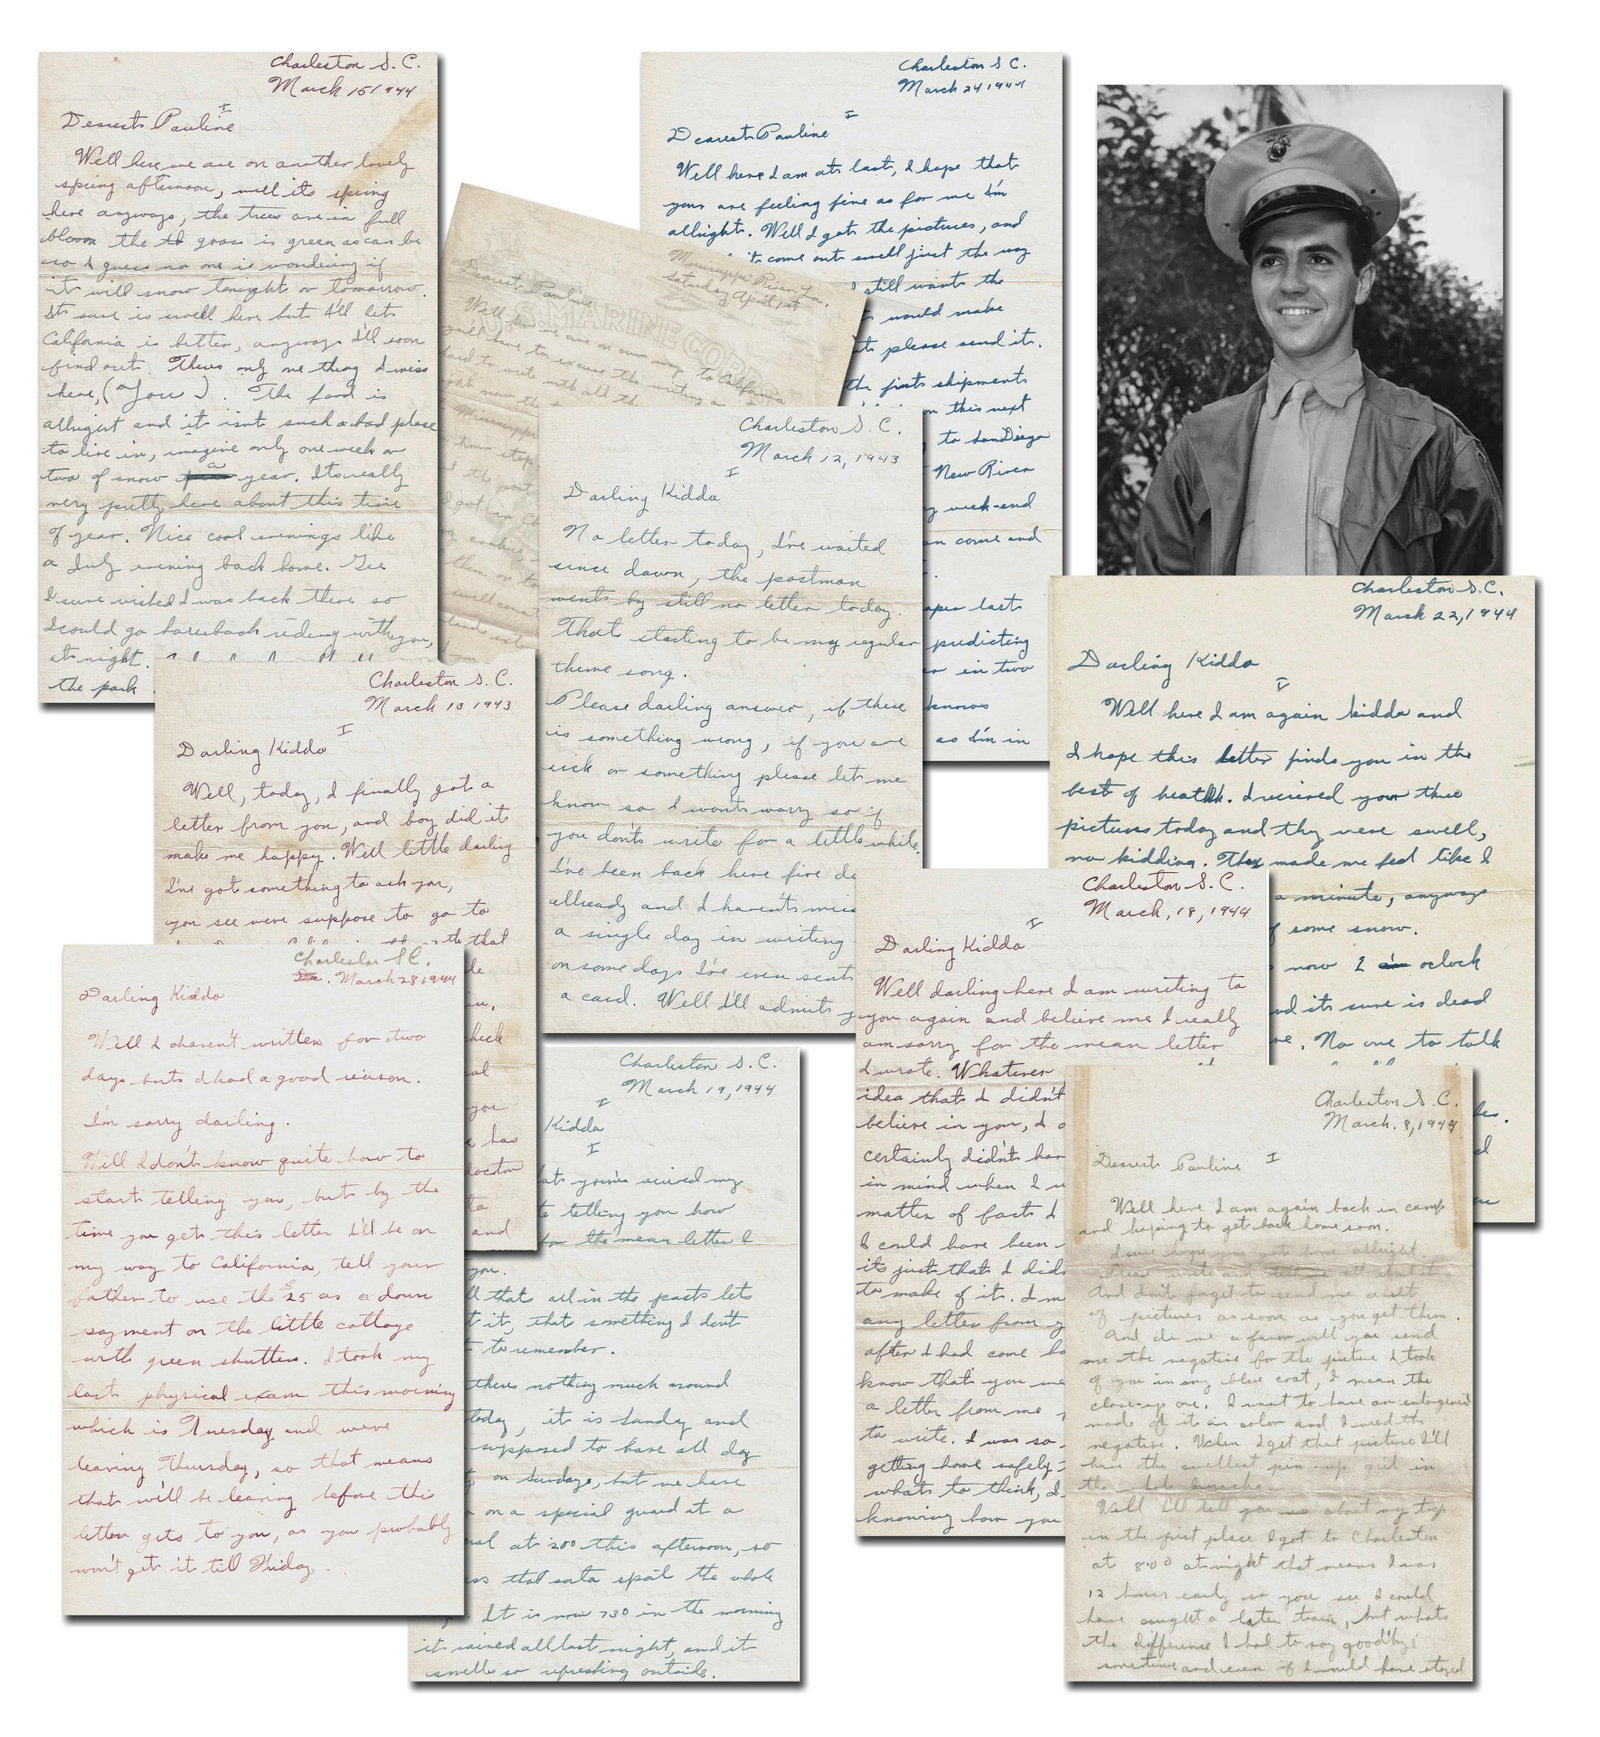 Charleston S. C.
March 15 1944
I
Dearest Pauline
Well here we are on another lovely
spring afternoon, well its spring
here anyways, the trees are in full
bloom the grass is green as can be
so I guess no one is wondering if
it will snow tonight or tomorrow.
Its sure is swell here but I'll bet
California is better, anyways I'll soon
find out. Theres only one thing I miss
here, (You). The food is
allright and it isnt such a bad place
to live in, imagine only one week or
two of snow a year. Its really
very pretty here about this time
of year. Nice cool evenings like
a July evening back home. Gee
I sure wished I was back there so
I could go horseback riding with you,
at night.
the park
Mississippi River, La.
Saturday April 1st
Dearest Pauline
U.S. MARINE CORPS
Well here we are on our way to California
you'll have to excuse the writing
hard to write with all the
right now the
Mississippi
hour stop
the post
I got in Ch
cookies,
them on to
Charleston S C.
March 24 1944
I
Dearest Pauline
Well here I am at last, I hope that
your are feeling fine as for me I'm
allright. Well I got the pictures, and
it come out swell just the way
I still wants the
would make
please send it.
the first shipments
on this next
to San Diego
New River
week-end
can come and
paper last
predicting
in two
knows
as I'm in
Charleston S. C.
March 12, 1943
I
Darling Kiddo
No letter today, I've waited
since dawn, the postman
went by still no letter today.
That starting to be my regular
theme song.
Please darling answer, if there
is something wrong, if you are
sick or something please let me
know so I wont worry so if
you don't write for a little while.
I've been back here five da
allready and I haven't miss
a single day in writing
on some days I've even sent
a card. Well I'll admit
Charleston S. C.
March 10 1943
I
Darling Kiddo
Well, today, I finally got a
letter from you, and boy did it
make me happy. Well little darling
I've got something to ask you,
you see were suppose to go to
that
check
you
has
doctor
to
and
Charleston S.C.
March 22, 1944
Darling Kiddo
I
Well here I am again kiddo and
I hope this letter finds you in the
best of health. I recieved your three
pictures today and they were swell,
no kidding. They made me feel like I
a minute, anyways
some snow.
now 2 oclock
and its sure is dead
No one to talk
Charleston S. C.
March, 18, 1944
I
Darling Kiddo
Well darling here I am writing to
you again and believe me I really
am sorry for the mean letter
I wrote. Whatever
idea that I didn't
believe in you, I
certainly didn't ha
in mind when I
matter of fact I
I could have been
its just that I did
to make of it. I
any letter from y
after I had come
know that you we
a letter from me
to write. I was so
getting home safely
whats to think, I
knowing how you
Charleston S.C.
March 28 1944
Darling Kiddo
Well I haven't written for two
days but I had a good reason.
I'm sorry darling.
Well I don't know quite how to
start telling you, but by the
time you get this letter I'll be on
my way to California, tell your
father to use the $25 as a down
payment on the little cottage
with green shutters. I took my
last physical exam this morning
which is Tuesday and were
leaving Thursday, so that means
that we'll be leaving before this
letter gets to you, as you probably
won't get it till Friday.
Charleston S. C.
March 19, 1944
I
Kiddo
I
you've recieved my
telling you how
for the mean letter I
you.
that all in the past lets
it, that something I don't
to remember.
theres nothing much around
today, it is Sunday and
supposed to have all day
on Sundays, but we have
on a special guard at a
at 200 this afternoon, so
that sorta spoil the whole
It is now 730 in the morning
it rained all last night, and it
smells so refreshing outside.
Charleston S. C.
March. 8, 1944
Dearest Pauline I
Well here I am again back in camp
and hoping to get back home soon.
I sure hope you got home allright.
Please write and tell me all about it
And don't forget to send me a set
of pictures as soon as you get them.
And do me a favor will you send
me the negative for the picture I took
of you in my blue coat, I mean the
close-up one. I want to have an enlargement
made of it in color and I need the
negative. When I get that picture I'll
have the swellest pin-up girl in
the whole barracks.
Well I'll tell you about my trip
in the first place I got to Charleston
at 8:00 at night that means I was
12 hours early so you see I could
have caught a later train, but whats
the difference I had to say goodbye
sometime and even if I would have stayed